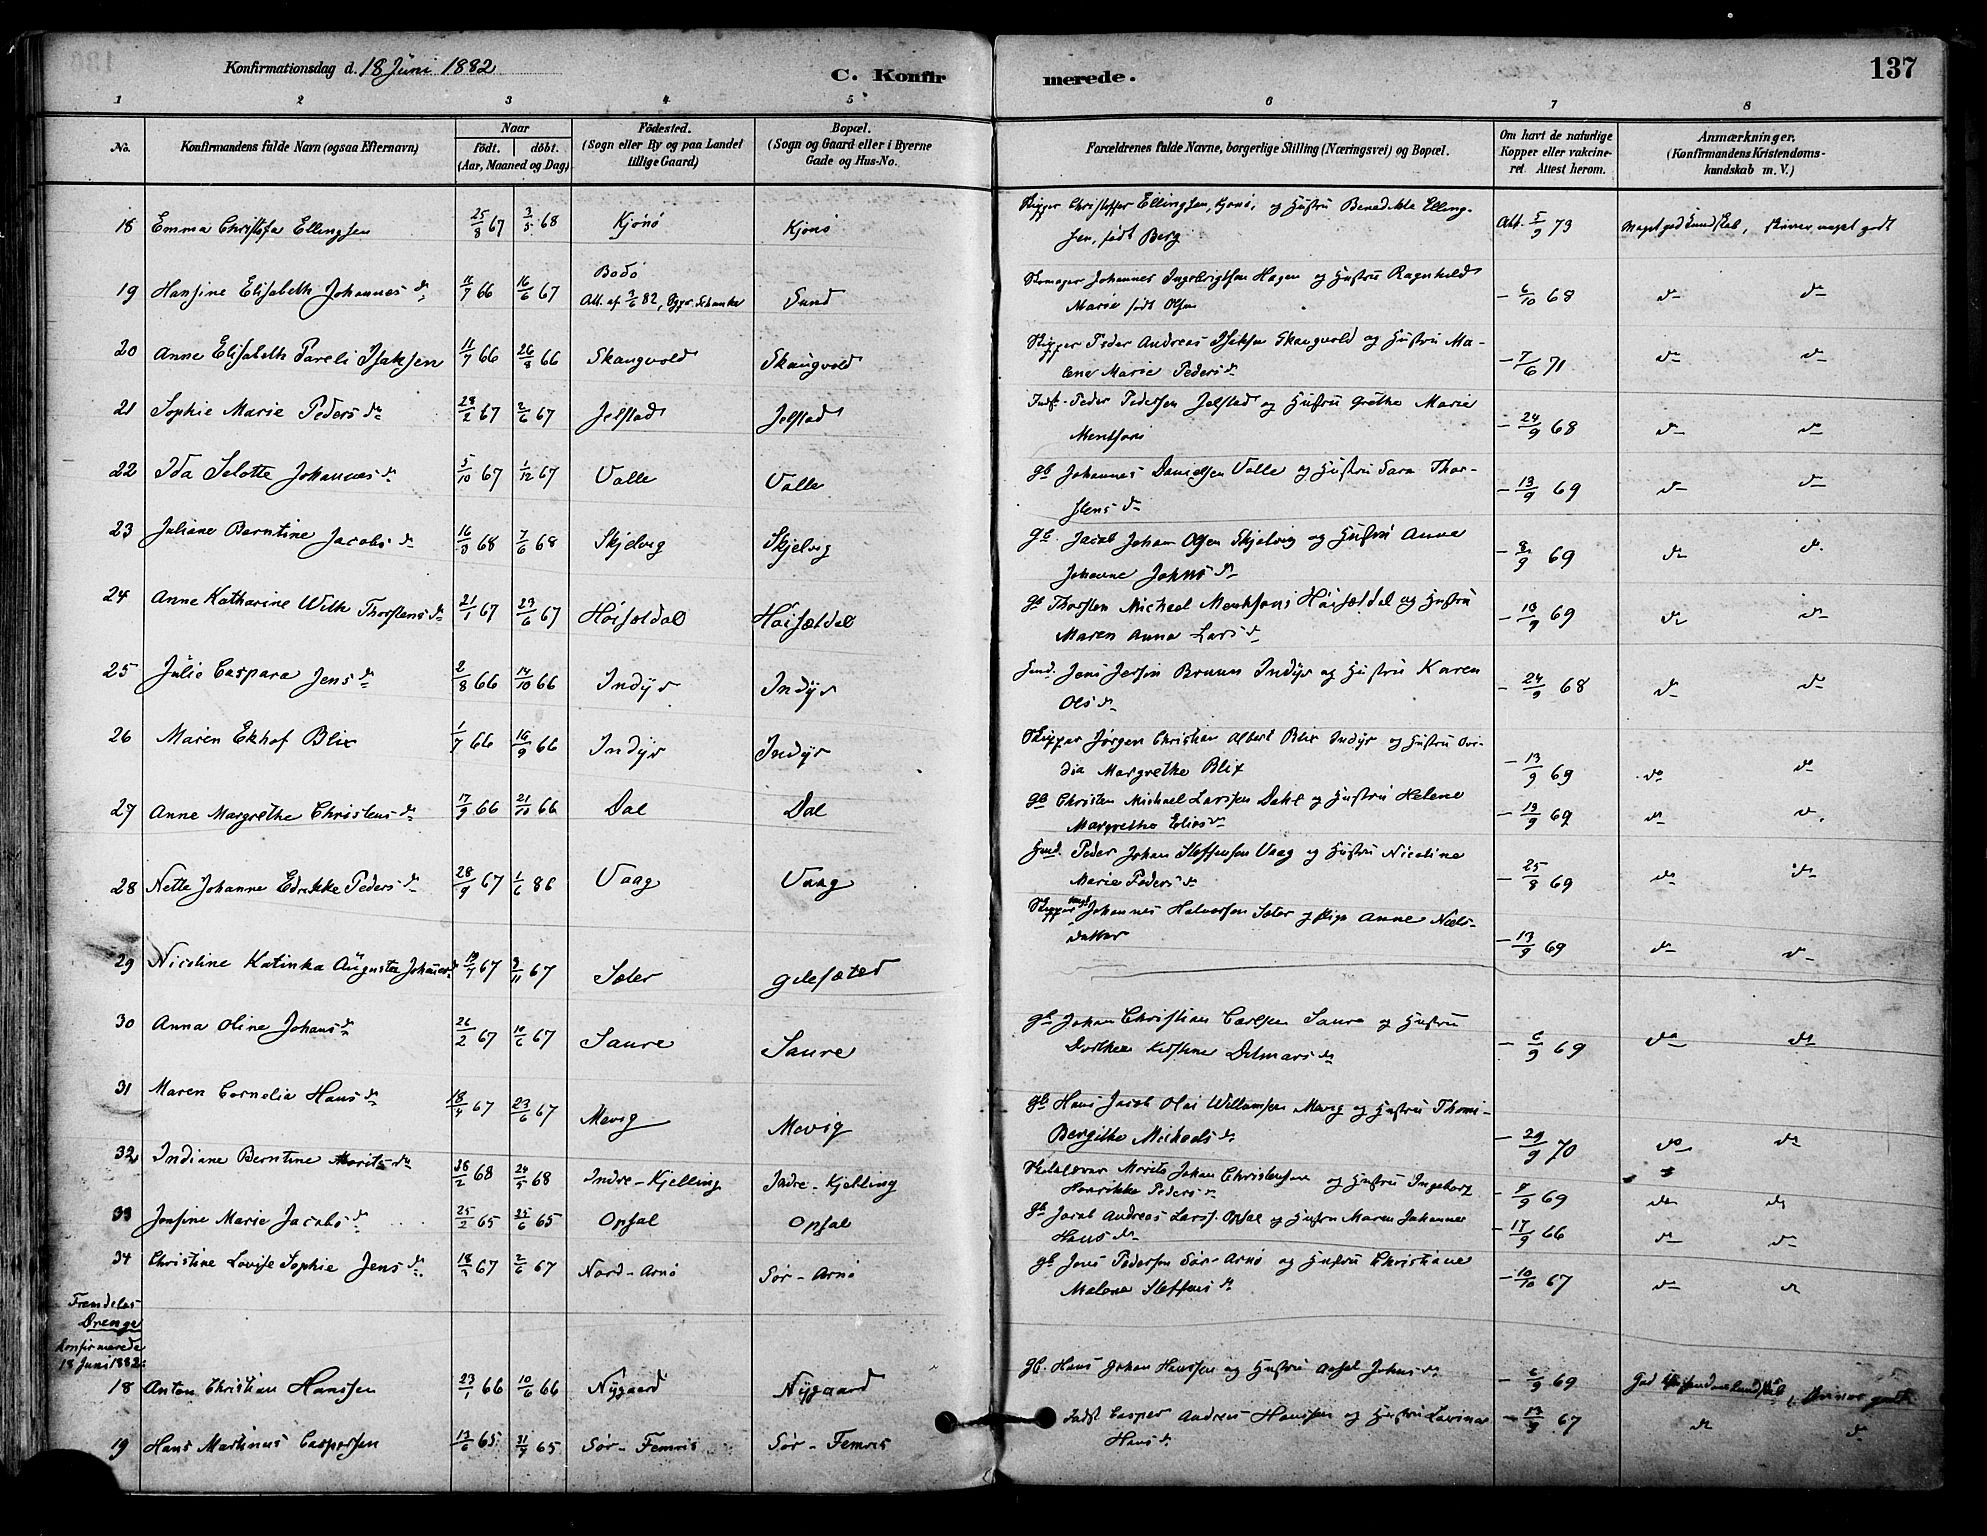 Konfirmationsdag d. 18 Juni 1882
C. Konfir merede. 137
1 2 3 4 5 6 7 8
No. Konfirmandens fulde Navn (ogsaa Efternavn) Naar født. døbt. (Aar, Maaned og Dag) Födested. (Sogn eller By og paa Landet tillige Gaard) Bopæl. (Sogn og Gaard eller i Byerne Gade og Hus-No. Forældrenes fulde Navne, borgerlige Stilling (Næringsvei) og Bopæl. Om havt de naturlige Kopper eller vakcineret. Attest herom. Anmærkninger. (Konfirmandens Kristendomskundskab m. V.)
18 Emma Christofa Ellingsen 25/8 67 3/5 68 Kjönö Kjönö Skipper Christoffer Ellingsen, Kjönö, og Hustru Benedikte Elling-
sen, født Berg Att. 5/9 73 Meget god Kundskab, skriver meget godt
19 Hansine Elisabeth Johannesda 11/7 66 16/6 67 Bodö Att. af 3/6 82, Sund Skomager Johannes Ingebrigtsen Hagen og Hustru Ragnhild
Marie født Olsen - 6/10 68 do do
20 Anne Elisabeth Pareli Isaksen 11/7 66 26/8 66 Skaugvold Skaugvold Skipper Peder Andreas Isaksen Skaugvold og Hustru Ma-
lene Marie Pedersda - 7/6 71 do do
21 Sophie Marie Pedersda 28/2 67 2/6 67 Jelstad Jelstad Indst. Peder Pedersen Jelstad og Hustru Grethe Marie
Mentsens - 24/9 68 do do
22 Ida Selotte Johannesda 5/10 67 1/12 67 Valle Valle gb Johannes Danielsen Valle og Hustru Sara Thor-
stensda - 13/9 69 do do
23 Juliane Berntine Jacobsda 16/3 68 7/6 68 Skjelvig Skjelvig gb. Jacob Johan Olsen Skjelvig og Hustru Anne
Johanne Johnsda 9/9 69 do do
24 Anne Katharine Wilh Thorstensda 21/1 67 23/6 67 Höisætdal Höisætdal gb Thorsten Michael Mentsens Höisætdal og Hustru
Maren Anna Larsda - 13/9 69 do do
25 Julie Caspara Jensda 2/8 66 14/10 66 Indyr Indyr Huusd. Jens Jersin Bruun Indyr og Hustru Karen
Olsda - 24/9 68 do do
26 Maren Ekhof Blix 1/7 66 16/9 66 Indyr Indyr Skipper Jörgen Christian Albert Blix Indyr og Hustru Ovi-
dia Margrethe Blix - 13/9 69 do do
27 Anne Margrethe Christensda 17/9 66 21/10 66 Dal Dal gb Christen Michael Larssen Dahl og Hustru Helene
Margrethe Eliasda - 13/9 69 do do
28 Nette Johanne Edrikke Pedersda 28/9 67 1/6 86 Vaag Vaag Huusd. Peder Johan Steffensen Vaag og Hustru Nicoline
Marie Pedersda - 25/8 69 do do
29 Nicoline Katinka Augusta Johannesda 19/7 67 3/11 67 Sæter Gilesæter Skipper Johannes Halvorsen Sæter og Pige Anne Niels-
datter - 13/9 69 do do
30 Anna Oline Johansda 26/2 67 10/6 67 Saure Saure gb Johan Christian Carlsen Saure og Hustru
Dorthea Kirstine Detmarsda - 6/9 69 do do
31 Maren Cornelia Hansda 18/4 67 23/6 67 Mevig Mevig gb Hans Jacob Olai Willumsen Mevig og Hustru Thomi-
Bergithe Michaelsda - 29/9 70 do do
32 Indiane Berntine Moritsda 28/2 68 24/5 68 Indre-Kjelling Indre-Kjelling Skolelærer Morits Johan Christensen og Hustru Ingeborg
Henrikke Pedersda - 9/9 69 do do
33 Josfine Marie Jacobsda 25/2 65 25/6 65 Opsal Opsal gb Jacob Andreas Larss. Opsal og Hustru Maren Johanne
Hansda - 17/9 66 do do
34 Christine Lovise Sophie Jensda 18/3 67 2/6 67 Nord-Arnö Sör-Arnö gb Jens Pedersen Sör-Arnö og Hustru Christiane
Malene Steffensda - 10/10 67 do do
Fremdeles
Drenge
Konfirmerede
18 Juni 1882:
18 Anton Christian Hanssen 23/1 66 10/6 66 Nygaard Nygaard gb. Hans Johan Hanssen og Hustru Johnsda - 6/9 69 God Kristendomskundskab, skriver godt
19 Hans Martinus Caspersen 13/6 65 31/7 65 Sör-Femris Sör-Femris Indst Casper Andreas Hanssen og Hustru Lavina
Hansda - 13/9 67 do do